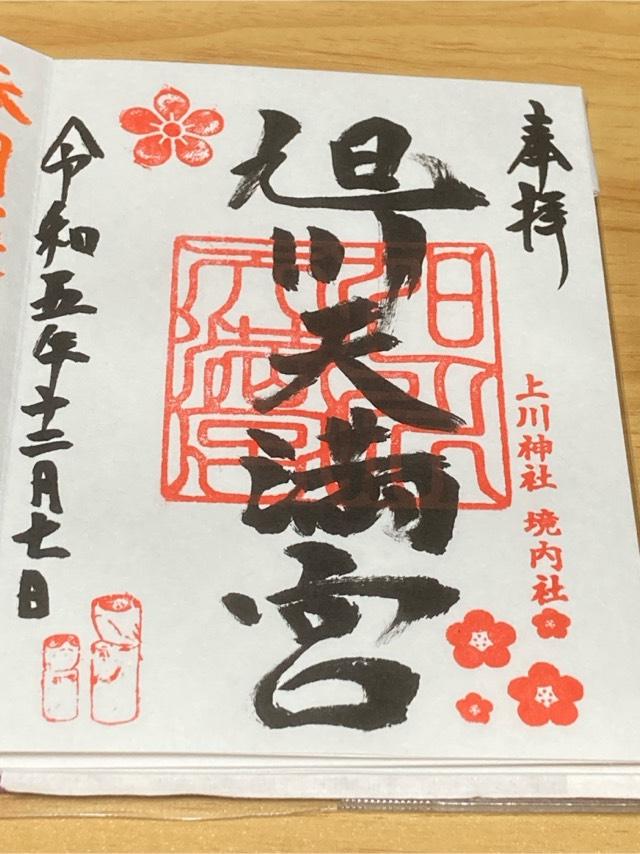 奉拝
上川神社 境内社
旭川天満宮
令和五年十二月七日